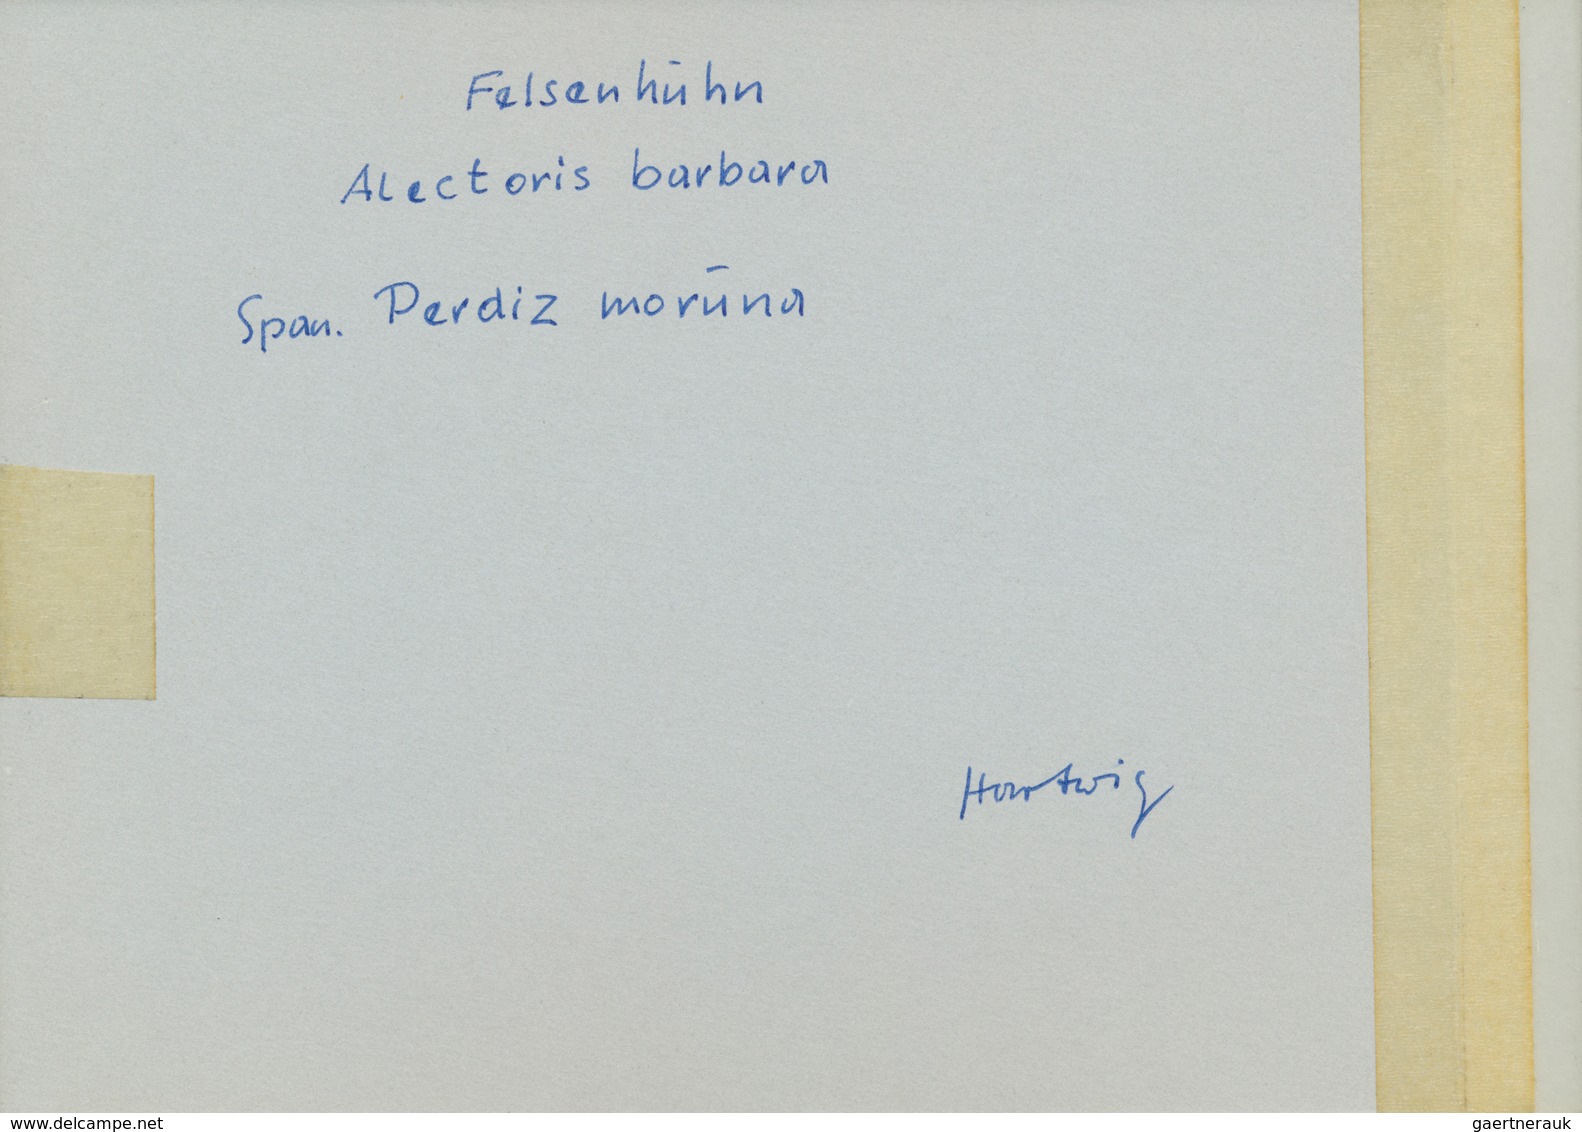 Felsenhuhn
Alectoris barbara
Span. Perdiz moruna
Hartwig
www.delcampe.net
gaertnerauk